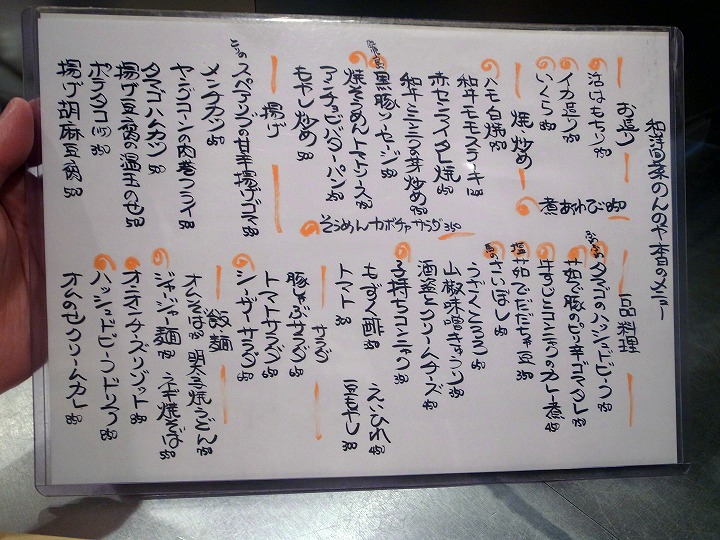 和洋酒菜のんのや本日のメニュー
お造り
活はもせつり 950
イカ造り 750
いくら
焼・炒め
煮あわび 950
ハモ白焼 950
和牛モモステーキ 1200
赤センマイタレ焼 650
和牛ミニニラの芽炒め 950
黒豚ソーセージ 550
焼そうめんトマトソース 750
アンチョビバターパン 350
もやし炒め 350
そうめんカボチャサラダ 350
揚げ
スペアリブの甘辛揚げゴマ 550
メンチカツ 550
ヤングコーンの肉巻フライ 550
タマゴハムカツ 550
揚げ豆腐の温玉のせ 500
ポテタコ 350
揚げ胡麻豆腐 550
一品料理
タマゴのハッシュドビーフ 750
茄で豚のピリ辛ゴマタレ 750
牛すじとコンニャクのカレー煮 450
塩茹でだだちゃ豆 350
さいぼし 550
うざくミョウガ 550
山椒味噌キャベツ 350
酒盗とクリームチーズ 450
子持ちコンニャク 350
もずく酢 350
えいひれ 450
トマト 350
豆もやし 300
サラダ
豚しゃぶサラダ 550
トマトサラダ 550
シーザーサラダ 550
飯麺
オムそば 850
明太子焼うどん 750
ジャージャ麺 750
ネギ焼そば 750
オニオンチーズリゾット 850
ハッシュドビーフドリア 850
オムのせクリームカレー 850